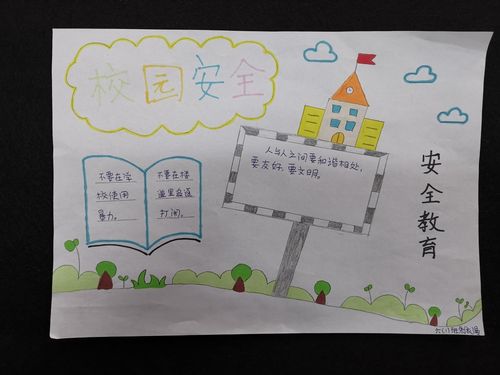 校园安全
人与人之间要和谐相处,
要友好,要文明。
不要在学
校使用
暴力。
不要在楼
道里追逐
打闹。
安全教育